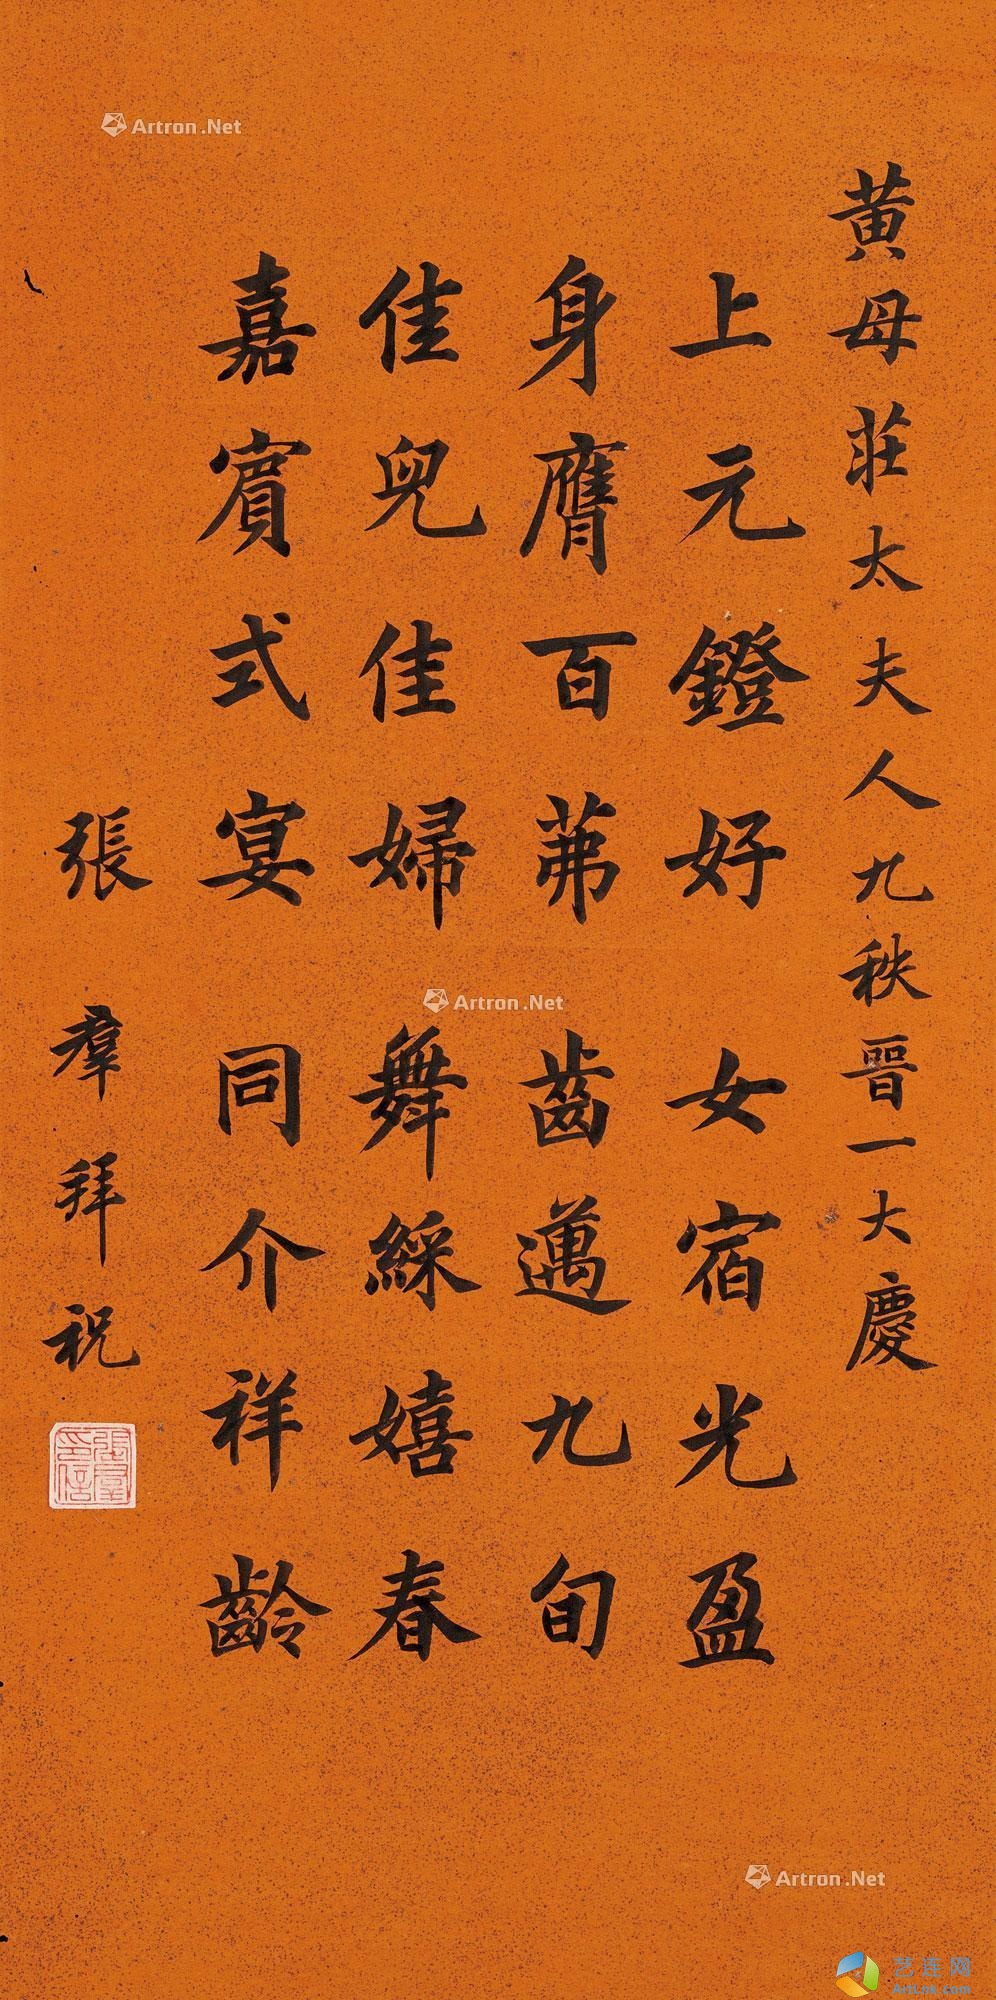 黄母莊太夫人九秩晉一大慶
上元鐙好女宿光盈
身膺百茀齒邁九旬
佳兒佳婦舞綵嬉春
嘉賓式宴同介祥齡
張羣拜祝
張羣印信
Artron.Net
Artron.Net
Artron.Net
艺连网
ArtLnk.com